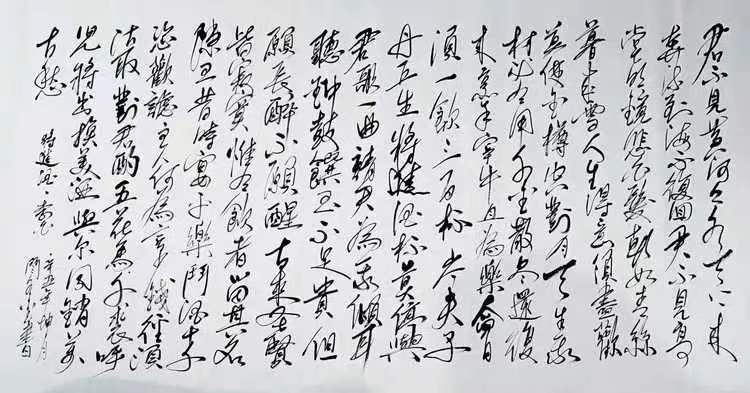 君不見黃河之水天上來
奔流到海不復回君不見高
堂明鏡悲白髮朝如青絲
暮成雪人生得意須盡歡
莫使金樽空對月天生我
材必有用千金散盡還復
來烹羊宰牛且為樂會
須一飲三百杯岑夫子
丹丘生將進酒杯莫停與
君歌一曲請君為我傾耳
聽鐘鼓饌玉不足貴但
願長醉不願醒古來聖賢
皆寂寞惟有飲者留其名
陳王昔時宴平樂鬥酒十千
恣歡謔主人何為言少錢徑須
沽取對君酌五花馬千金裘呼
兒將出換美酒與爾同銷萬
古愁
將進酒李白
辛丑年 月
書